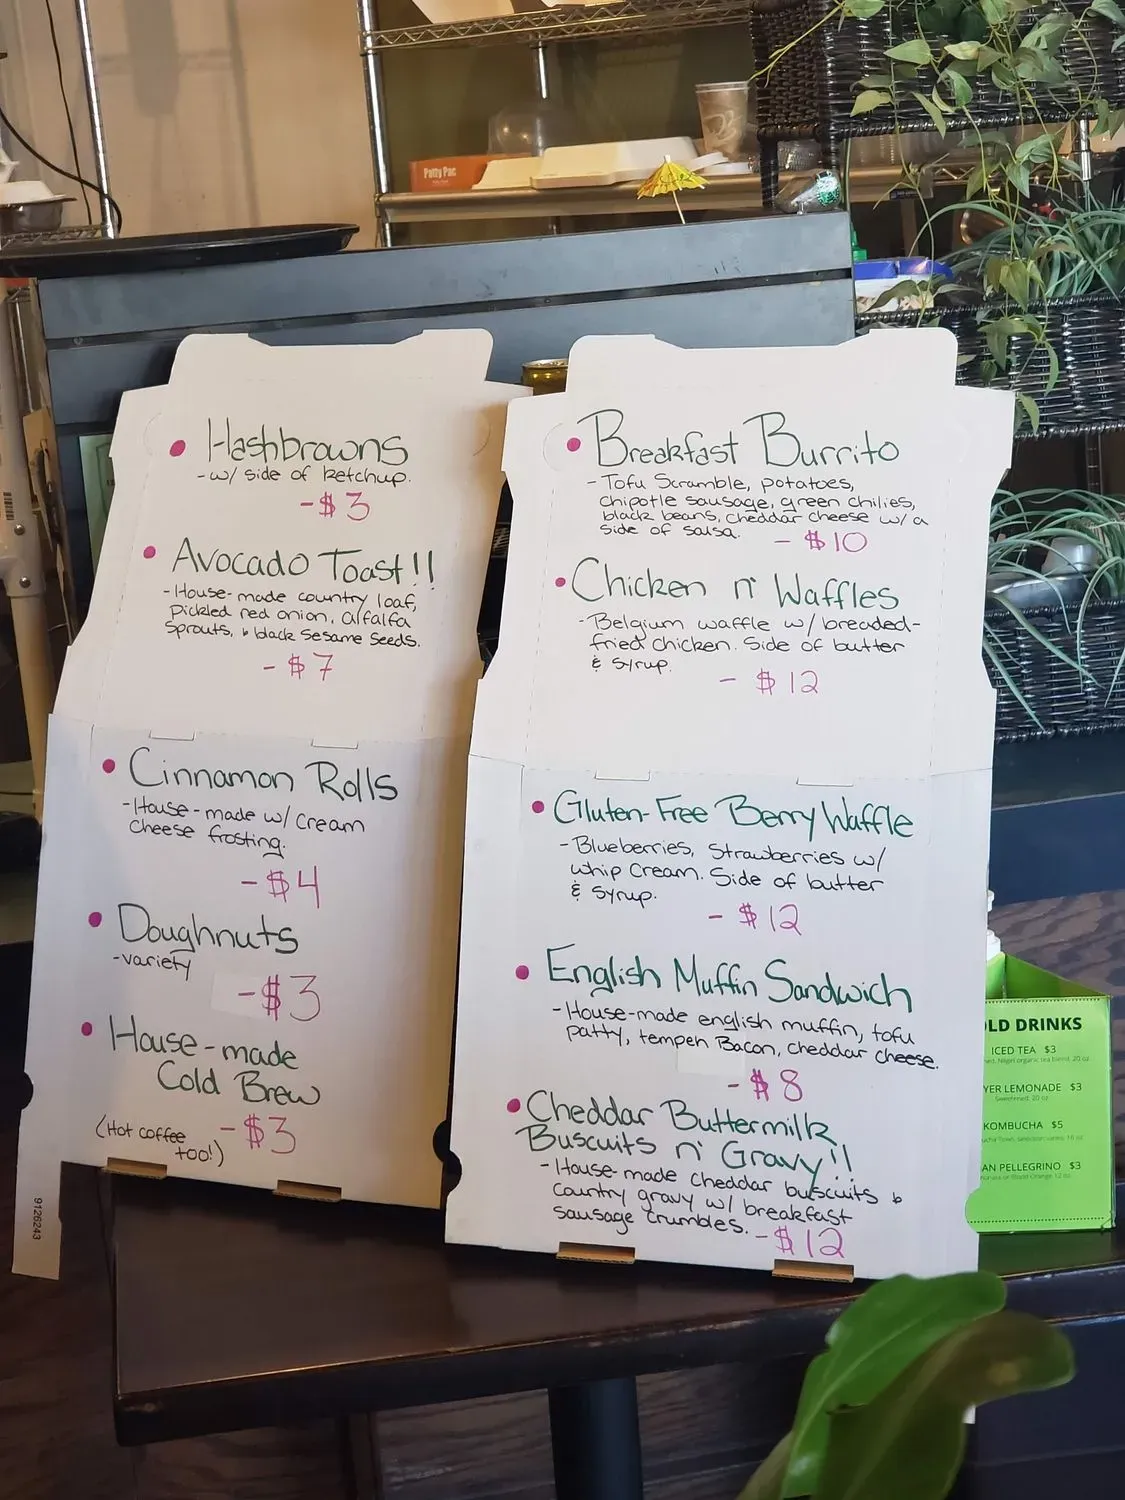 Patty Pac
• Hashbrowns
- w/ side of ketchup.
- $3
• Avocado Toast!!
- House-made country loaf,
pickled red onion, alfalfa
sprouts, & black sesame seeds.
- $7
• Cinnamon Rolls
- House-made w/ cream
cheese frosting.
- $4
• Doughnuts
- variety
- $3
• House-made
Cold Brew
(Hot coffee too!) - $3
9126243
• Breakfast Burrito
- Tofu Scramble, potatoes,
chipotle sausage, green chilies,
black beans, cheddar cheese w/ a
side of salsa. - $10
• Chicken n' Waffles
- Belgium waffle w/ breaded-
fried chicken. Side of butter
& syrup.
- $12
• Gluten-Free Berry Waffle
- Blueberries, Strawberries w/
whip cream. Side of butter
& syrup.
- $12
• English Muffin Sandwich
- House-made english muffin, tofu
patty, tempeh Bacon, cheddar cheese.
- $8
• Cheddar Buttermilk
Buscuits n' Gravy!!
- House-made cheddar buscuits &
country gravy w/ breakfast
sausage crumbles. - $12
LD DRINKS
ICED TEA $3
YER LEMONADE $3
Sweetened, 20 oz
KOMBUCHA $5
AN PELLEGRINO $3